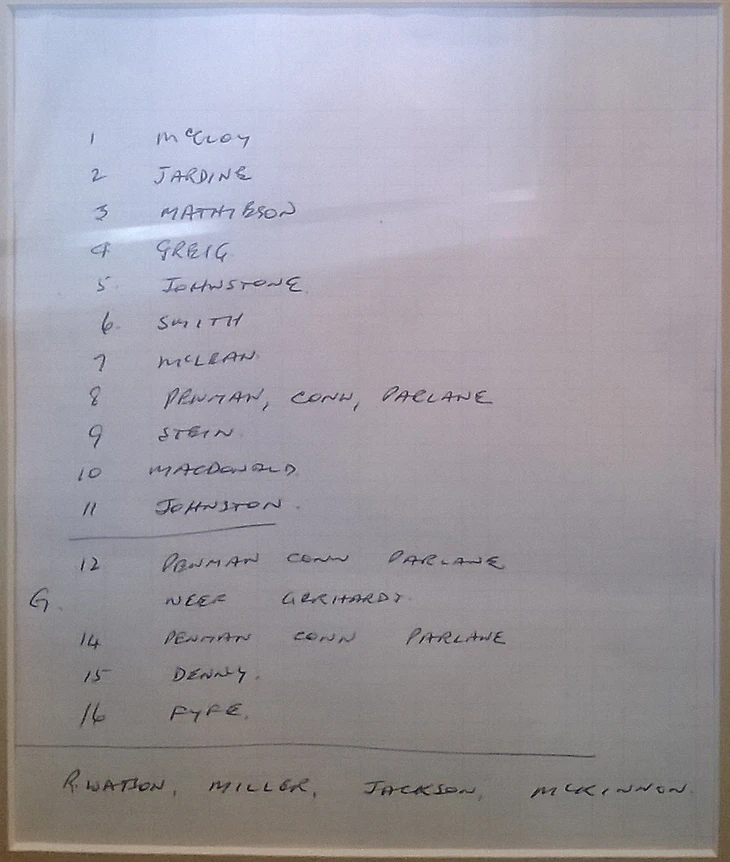 1 McCLOY
2 JARDINE
3 MATHIESON
4 GREIG
5. JOHNSTONE.
6. SMITH
7 McLEAN.
8 PENMAN, CONN, PARLANE
9 STEIN.
10 MACDONALD.
11 JOHNSTON.
12 PENMAN CONN PARLANE
G. NEEF GERHARDT.
14 PENMAN CONN PARLANE
15 DENNY.
16 FYFE.
R. WATSON, MILLER, JACKSON, McKINNON.